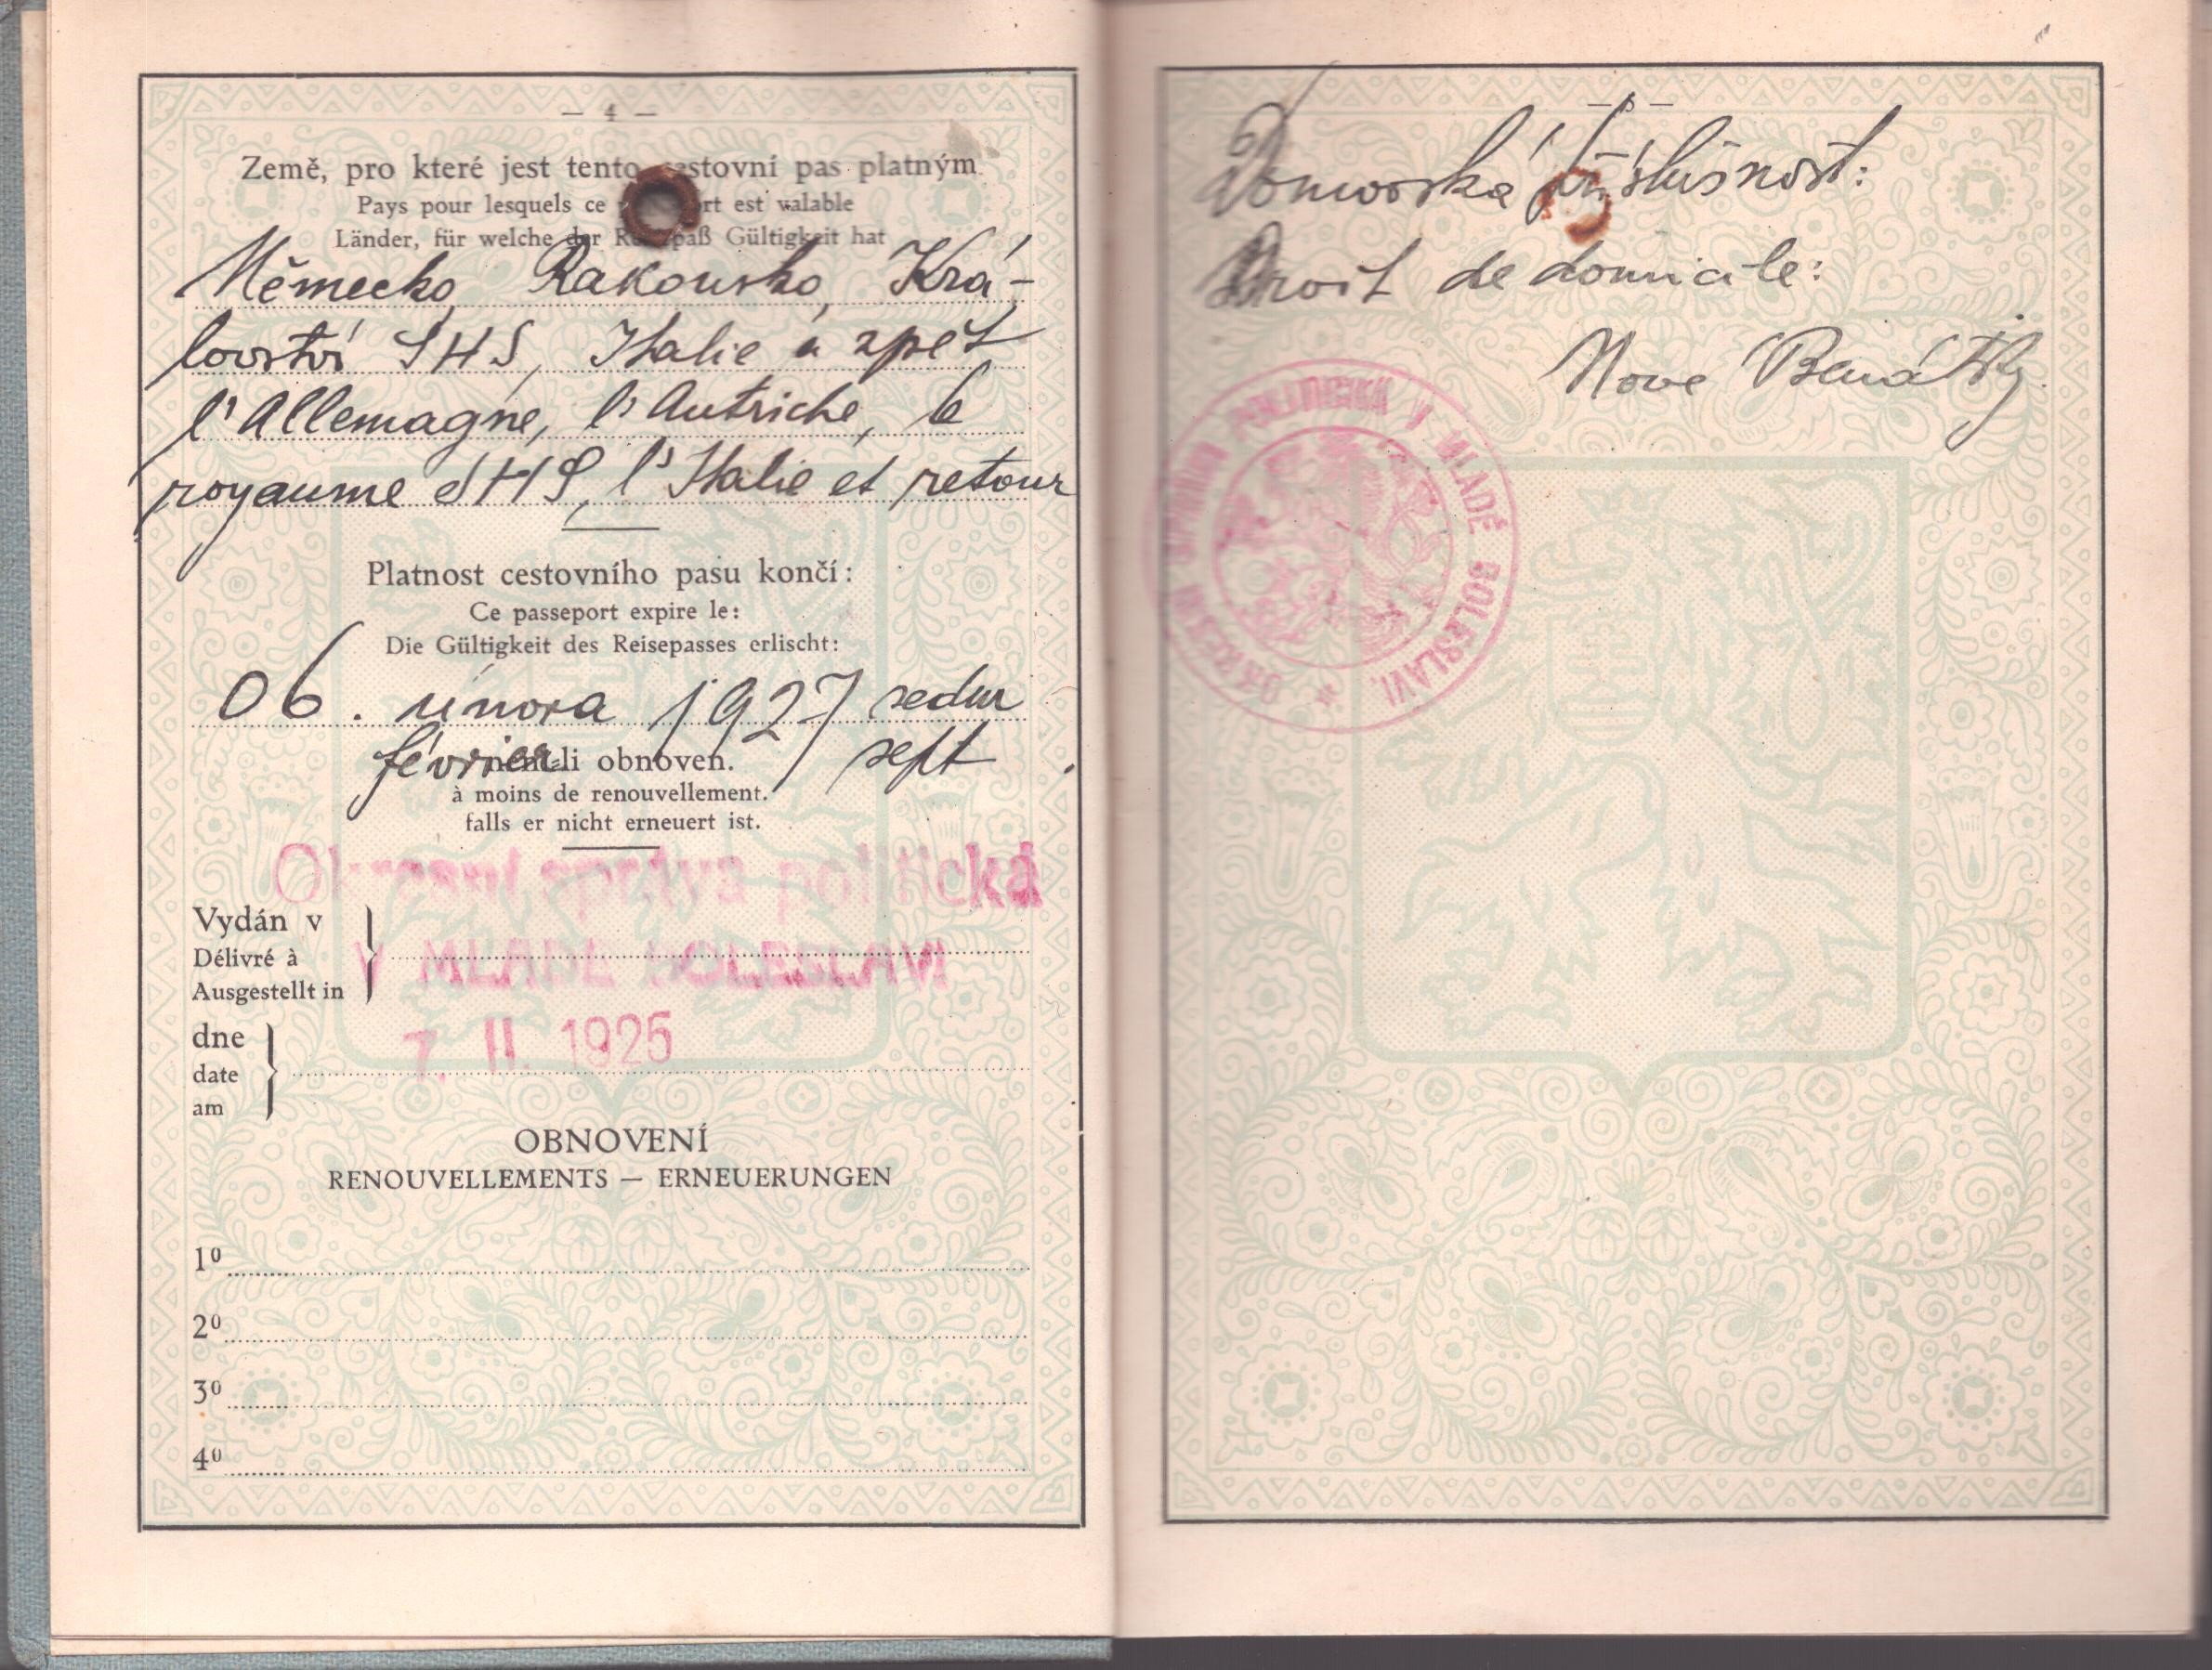 — 4 —
Země, pro které jest tento cestovní pas platným
Pays pour lesquels ce passeport est valable
Länder, für welche der Reisepaß Gültigkeit hat
Německo, Rakousko, Krá-
lovství SHS, Italie a zpět
l'Allemagne, l'Autriche, le
royaume SHS, l'Italie et retour
Platnost cestovního pasu končí:
Ce passeport expire le:
Die Gültigkeit des Reisepasses erlischt:
06. února 1927 sedm
février sept
není-li obnoven.
à moins de renouvellement.
falls er nicht erneuert ist.
Okresní správa politická
Vydán v
Délivré à
V MLADÉ BOLESLAVI
Ausgestellt in
dne
7. II. 1925
date
am
OBNOVENÍ
RENOUVELLEMENTS — ERNEUERUNGEN
1⁰
2⁰
3⁰
4⁰
— 5 —
Domovská příslušnost:
Droit de domicile:
Nové Benátky.
OKRESNÍ SPRÁVA POLITICKÁ V MLADÉ BOLESLAVI. *